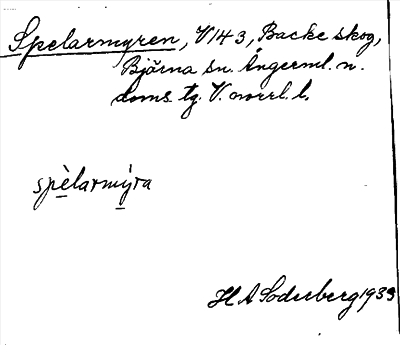 Spelarmyren, V143, Backe skog,
Björna sn. Ångerml. n.
doms. tg. V. norrl. l.
spèlarmýra
H A Soderberg 1933